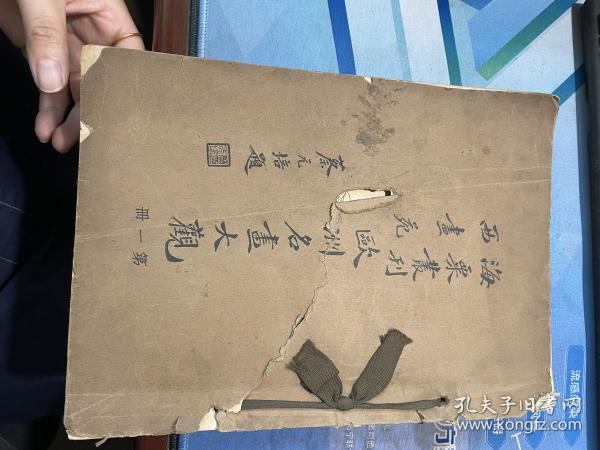 海粟叢刊
西畫苑
歐洲名畫大觀
第一冊
蔡元培題
流感
孔夫子旧书网
kongfz.com